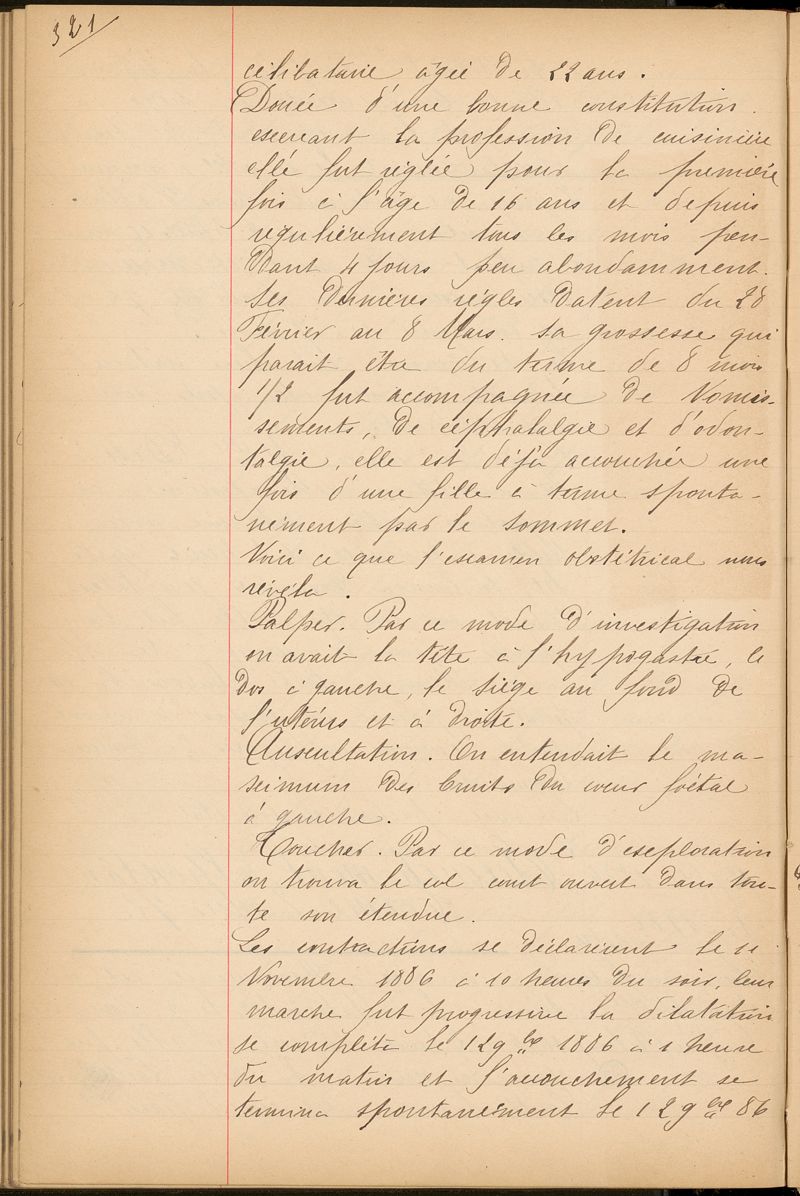 321
célibataire âgée de 22 ans.
Douée d'une bonne constitution
exerçant la profession de cuisinière
elle fut réglée pour la première
fois à l'âge de 16 ans et depuis
régulièrement tous les mois pen-
dant 4 jours peu abondamment.
Ses dernières règles datent du 28
Février au 8 Mars. Sa grossesse qui
parait être du terme de 8 mois
1/2 fut accompagnée de Vomis-
sements, de céphalalgie et d'odon-
talgie, elle est déjà accouchée une
fois d'une fille à terme sponta-
nément par le sommet.
Voici ce que l'examen obstétrical nous
révéla.
Palper. Par ce mode d'investigation
on avait la tête à l'hypogastre, le
dos à gauche, le siège au fond de
l'utérus et à droite.
Auscultation. On entendait le ma-
ximum des bruits du cœur foétal
à gauche.
Toucher. Par ce mode d'exploration
on trouva le col court ouvert dans tou-
te son étendue.
Les contractions se déclarèrent le 11
Novembre 1886 à 10 heures du soir, leur
marche fut progressive la dilatation
se compléta le 12 9bre 1886 à 1 heure
du matin et l'accouchement se
termina spontanément le 12 9bre 86